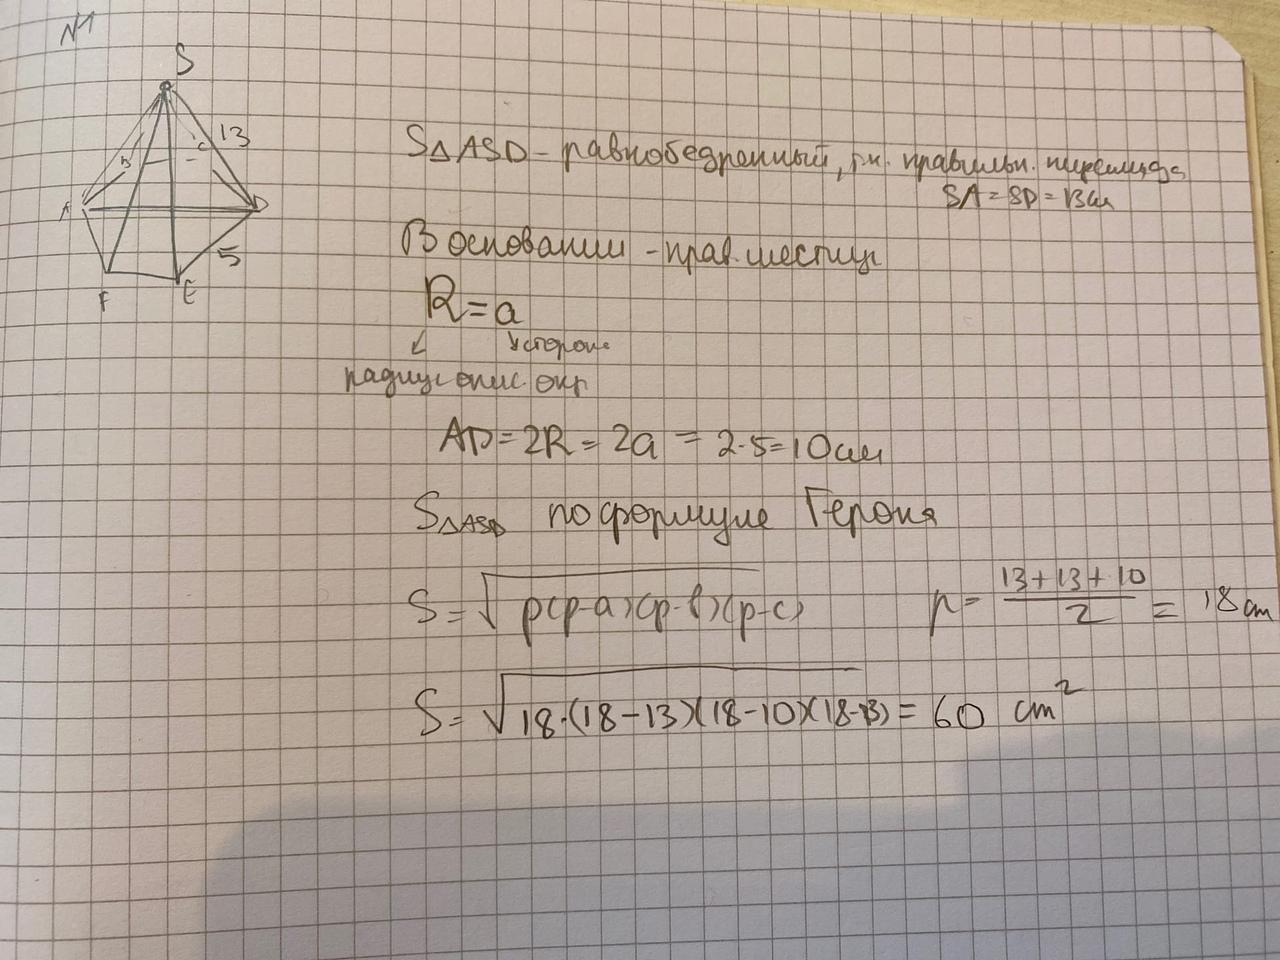 N1
S
13
B
C
A
D
5
F
E
S△ASD - равнобедренный, т.к. правильн. пирамида
SA = SD = 13см
В основании - прав. шестиуг
R = a
сторона
радиус опис. окр
AD = 2R = 2a = 2·5 = 10см
S△ASD по формуле Герона
S = √p(p-a)(p-b)(p-c)
p = (13+13+10)/2 = 18 cm
S = √18·(18-13)(18-10)(18-13) = 60 cm²